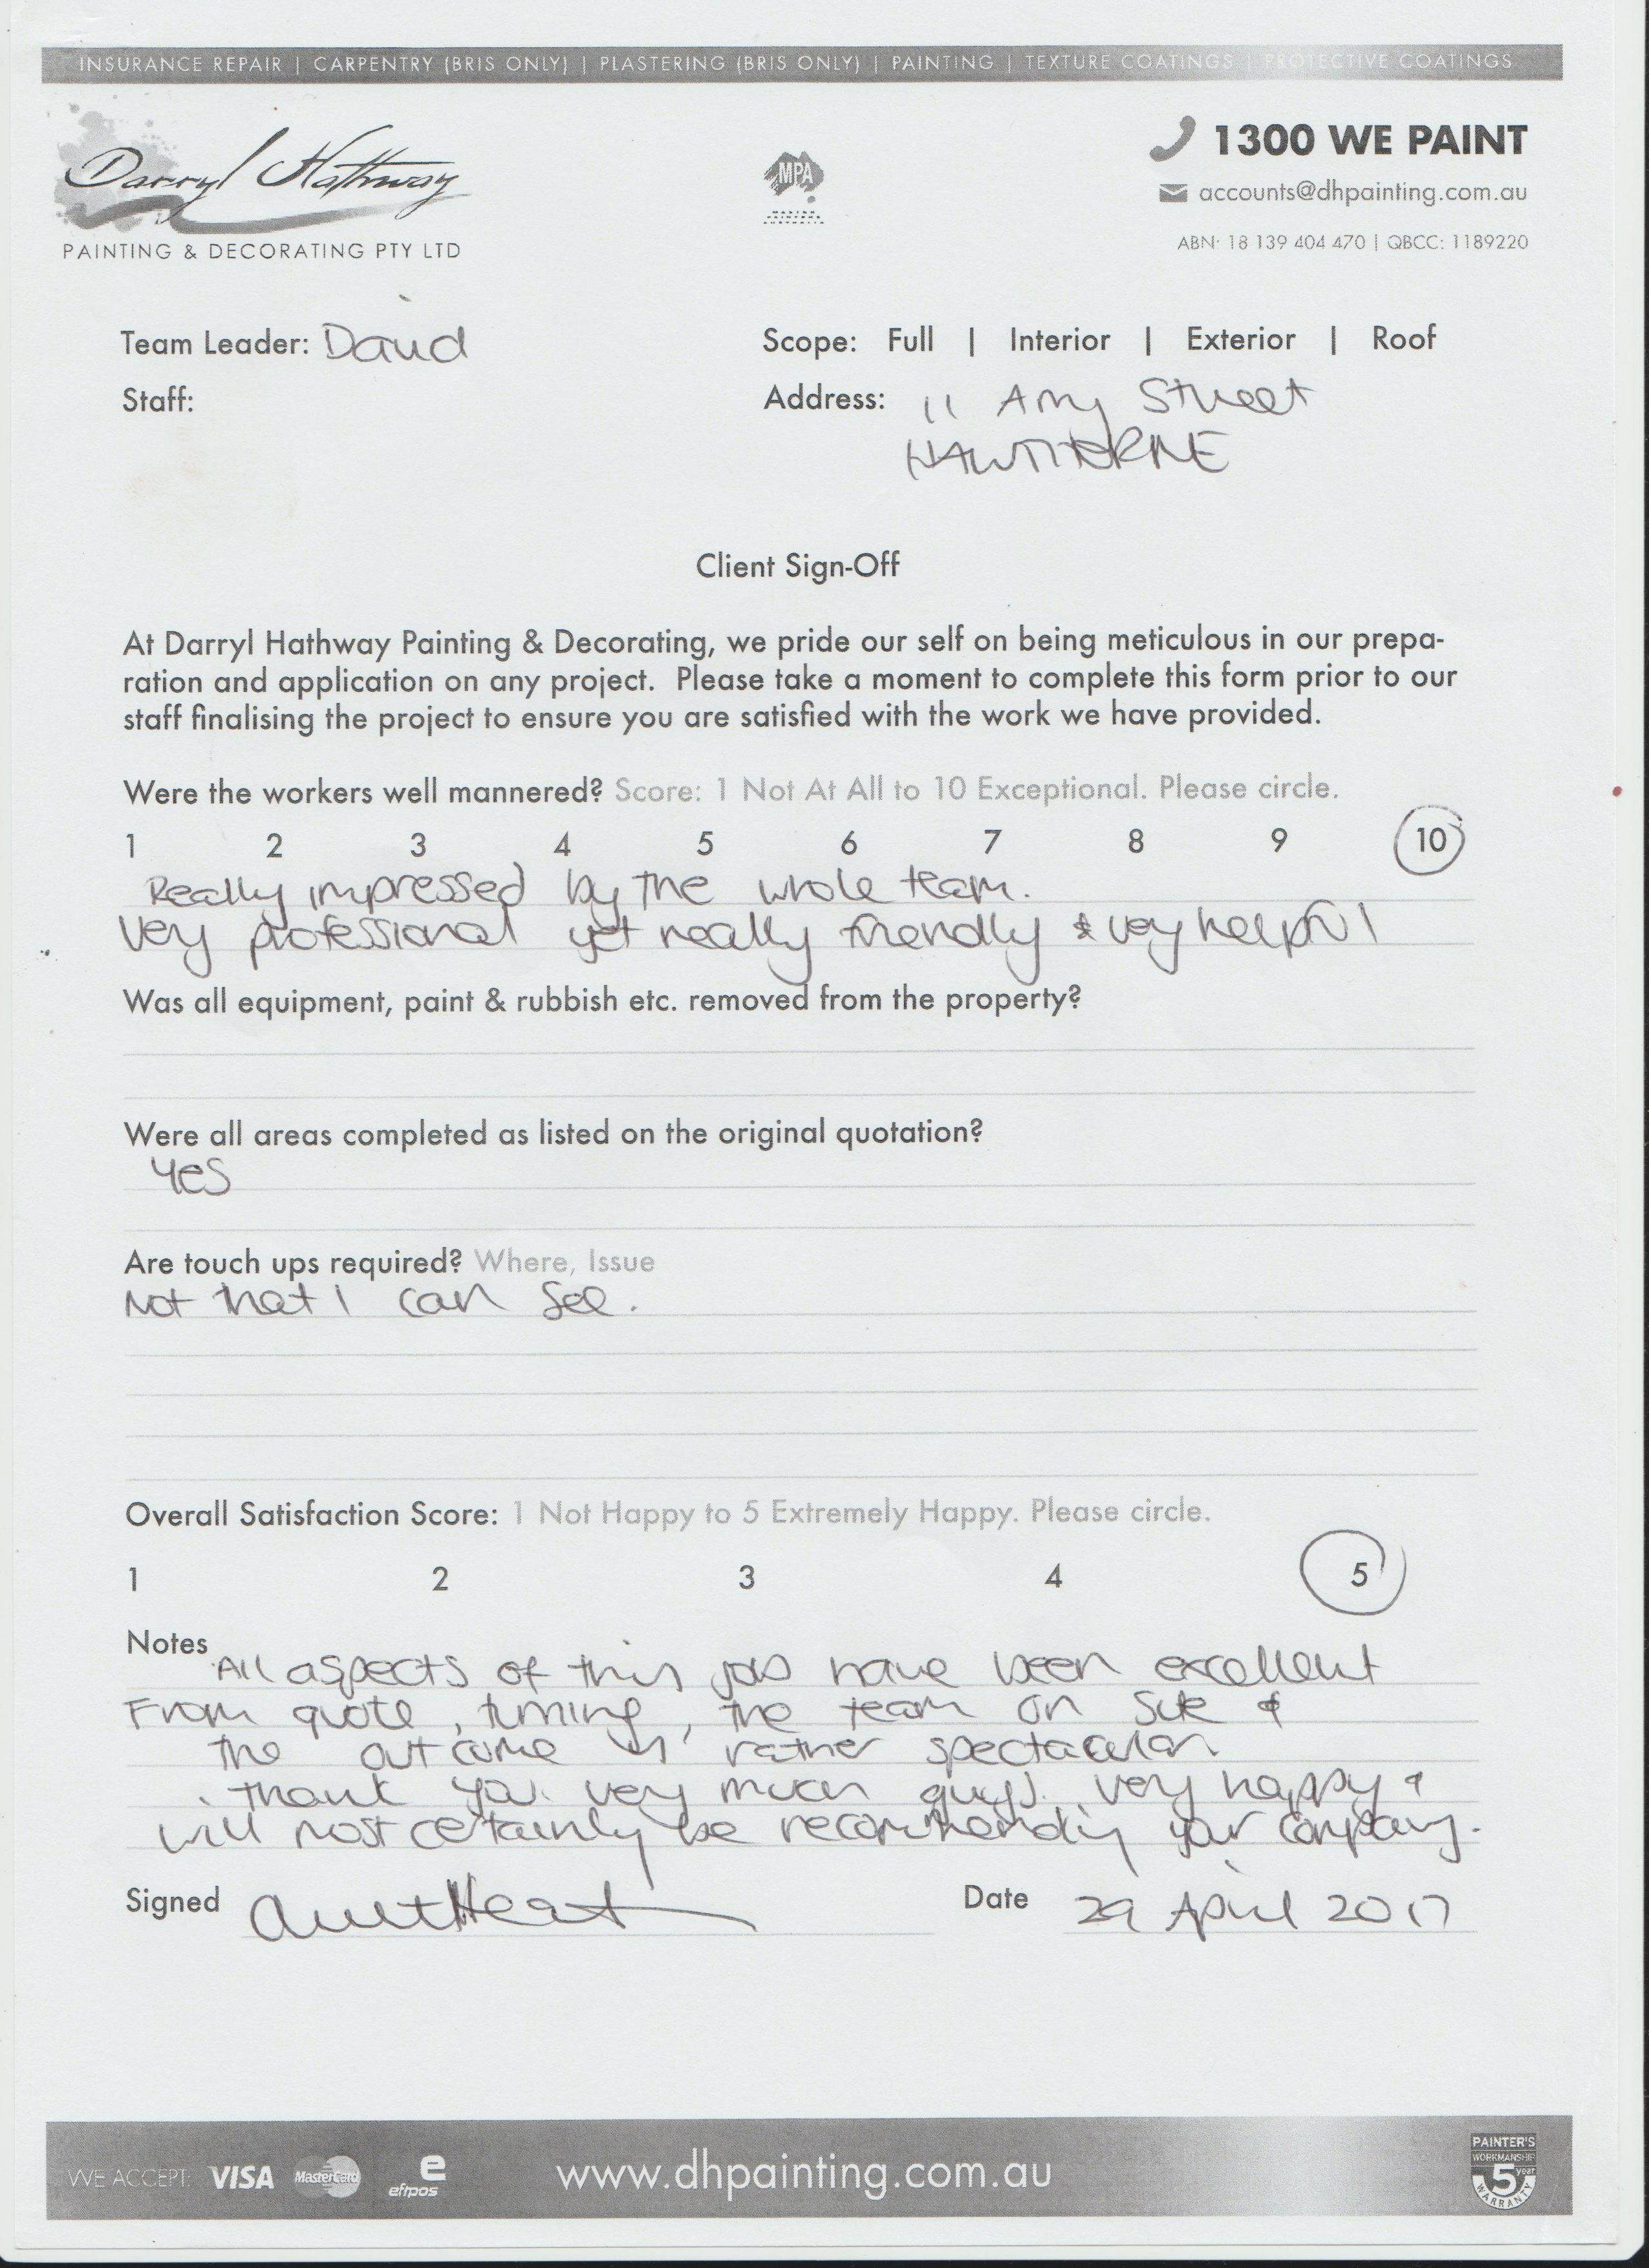 INSURANCE REPAIR | CARPENTRY (BRIS ONLY) | PLASTERING (BRIS ONLY) | PAINTING | TEXTURE COATINGS | PROTECTIVE COATINGS
Darryl Hathway
PAINTING & DECORATING PTY LTD
MPA
1300 WE PAINT
accounts@dhpainting.com.au
ABN: 18 139 404 470 | QBCC: 1189220
Team Leader: David
Scope: Full | Interior | Exterior | Roof
Staff:
Address: 11 Amy Street
HAWTHORNE
Client Sign-Off
At Darryl Hathway Painting & Decorating, we pride our self on being meticulous in our prepa-
ration and application on any project. Please take a moment to complete this form prior to our
staff finalising the project to ensure you are satisfied with the work we have provided.
Were the workers well mannered? Score: 1 Not At All to 10 Exceptional. Please circle.
1 2 3 4 5 6 7 8 9 10
Really impressed by the whole team.
Very professional yet really friendly & very helpful
Was all equipment, paint & rubbish etc. removed from the property?
Were all areas completed as listed on the original quotation?
Yes
Are touch ups required? Where, Issue
Not that I can see.
Overall Satisfaction Score: 1 Not Happy to 5 Extremely Happy. Please circle.
1 2 3 4 5
Notes All aspects of this job have been excellent
From quote, timing, the team on site &
the outcome is rather spectacular
thank you very much guys. very happy &
will most certainly be recommending your company.
Signed
Date 29 April 2017
WE ACCEPT: VISA MasterCard eftpos
www.dhpainting.com.au
PAINTER'S
WORKMANSHIP
5 year
WARRANTY